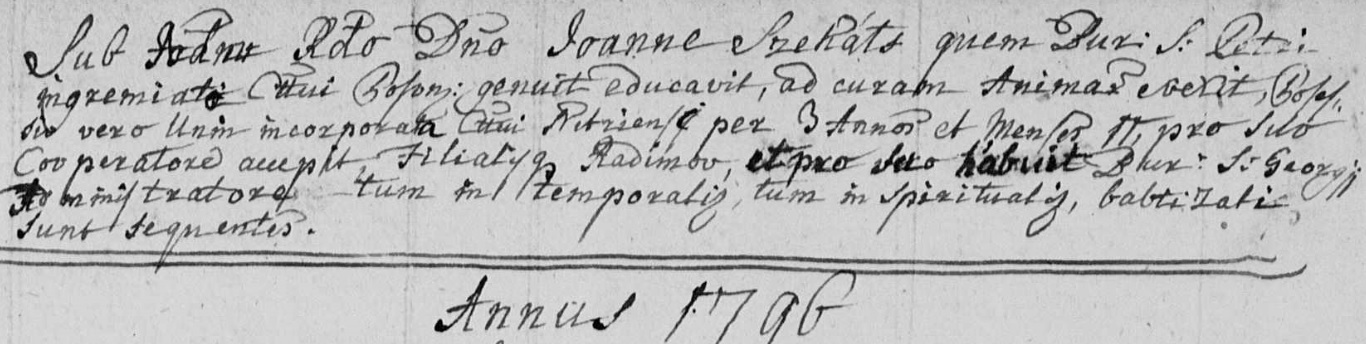 Sub Rdo Dno Joanne Szekáts quem Bur: S: Petri
ingremiati Cttui Poson: genuit educavit, ad curam Animar evexit, Posses-
sio vero Unin incorporata Cttui Nitriensi per 3 Annos et Menses 11, pro suo
Cooperatore accepit, Filialisq Radimov, et pro suo habuit Bur: S: Georgij
Administratore tum in temporalig, tum in spiritualig, babtizati
sunt sequentes.
Annus 1796